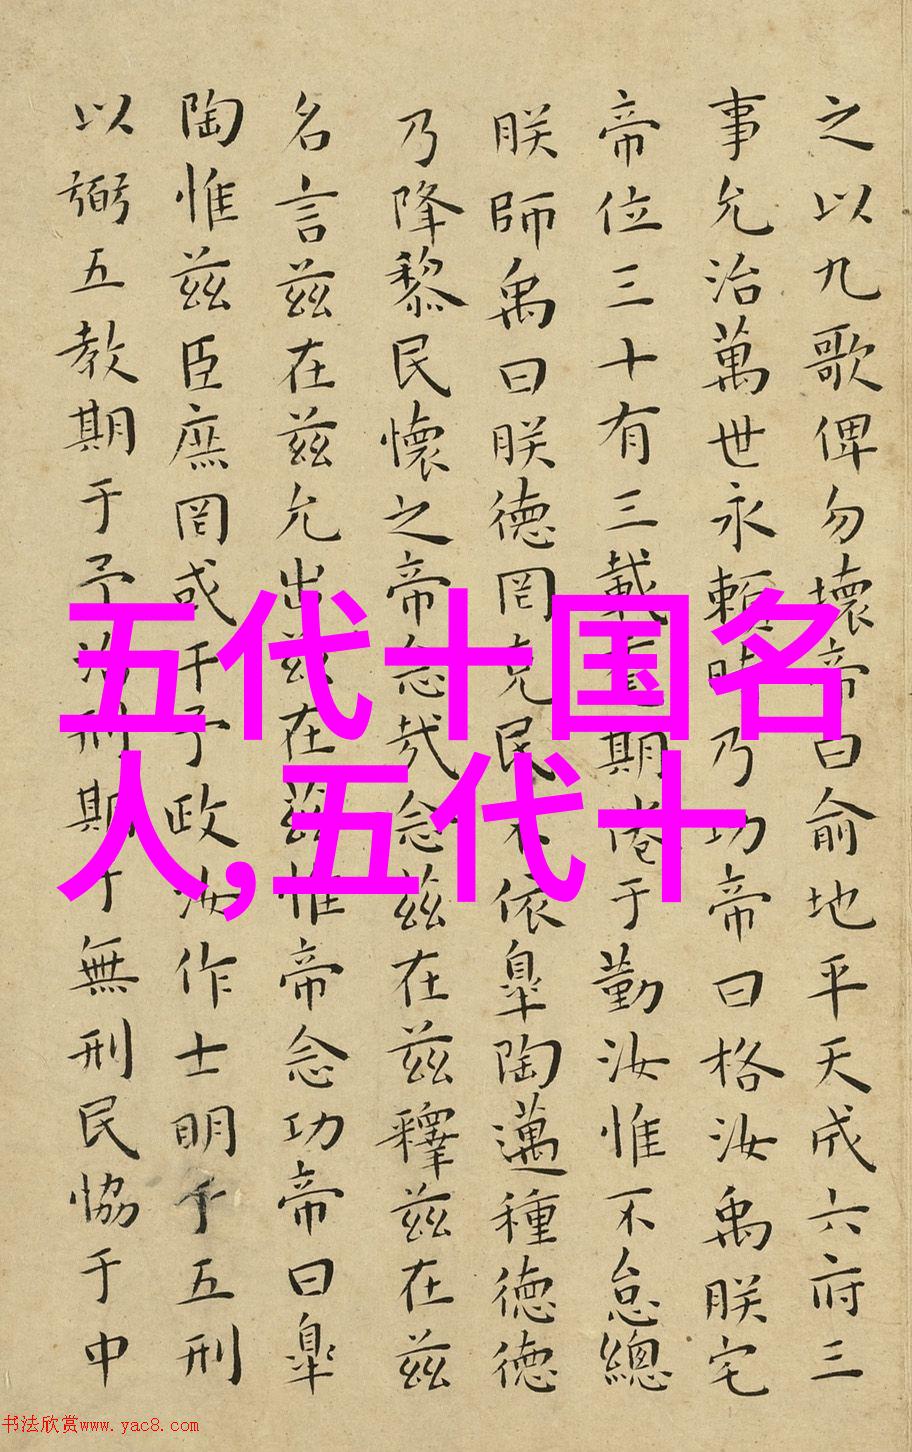 之以九歌俾勿壞帝曰俞地平天成六府三
事允治萬世永賴時乃功帝曰格汝禹朕宅
帝位三十有三載耄期倦于勤汝惟不怠總
朕師禹曰朕德罔克民不依皐陶邁種德德
乃降黎民懷之帝念哉念茲在茲釋茲在茲
名言茲在茲允出茲在茲惟帝念功帝曰皐
陶惟茲臣庶罔或干予政汝作士明于五刑
以弼五教期于予治刑期于無刑民協于中
五代十国名
人,五代十
书法欣赏www.yac8.com